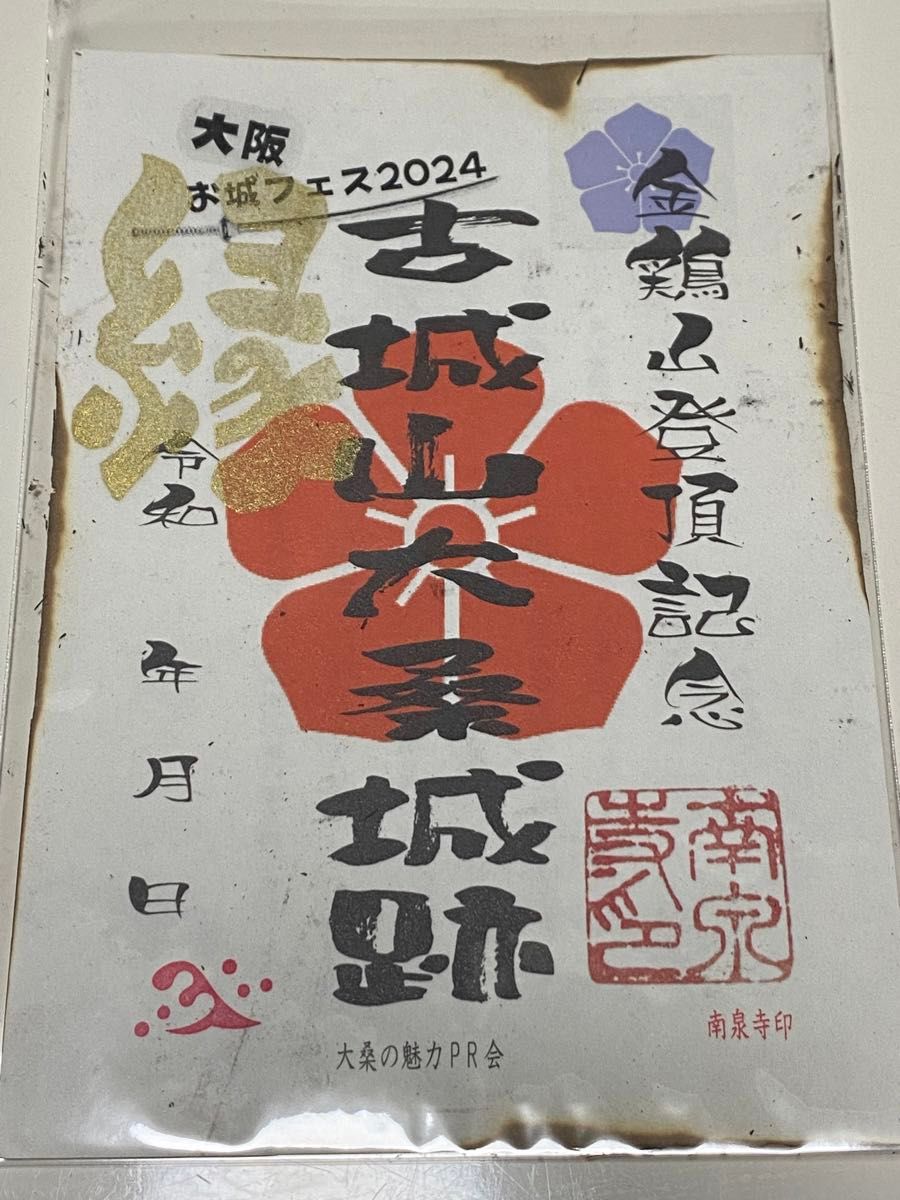 大阪
お城フェス2024
金鶏山登頂記念
古城山大桑城跡
縁
令和
年
月
日
南泉
寺印
南泉寺印
大桑の魅力PR会